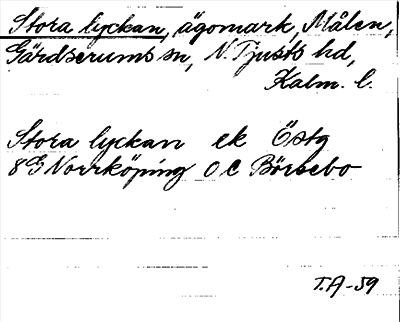 Stora lyckan, ägomark, Målen,
Gärdserums sn, N. Tjusts hd,
Kalm. l.
Stora lyckan ek Östg
8G Norrköping 0 c Börsebo
T.A-59